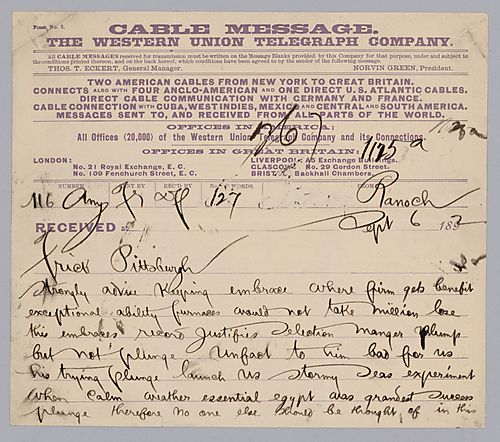 Form No. 2.
CABLE MESSAGE.
THE WESTERN UNION TELEGRAPH COMPANY.
All CABLE MESSAGES received for transmission must be written on the Message Blanks provided by this Company for that purpose, under and subject to
the conditions printed thereon, and on the back hereof, which conditions have been agreed to by the sender of the following message.
THOS. T. ECKERT, General Manager. NORVIN GREEN, President.
TWO AMERICAN CABLES FROM NEW YORK TO GREAT BRITAIN.
CONNECTS ALSO WITH FOUR ANGLO-AMERICAN AND ONE DIRECT U.S. ATLANTIC CABLES.
DIRECT CABLE COMMUNICATION WITH GERMANY AND FRANCE.
CABLE CONNECTION WITH CUBA, WEST INDIES, MEXICO AND CENTRAL AND SOUTH AMERICA.
MESSAGES SENT TO, AND RECEIVED FROM ALL PARTS OF THE WORLD.
OFFICES IN AMERICA:
All Offices (20,000) of the Western Union Telegraph Company and its Connections.
OFFICES IN GREAT BRITAIN:
LONDON: LIVERPOOL: A5 Exchange Buildings.
No. 21 Royal Exchange, E. C. GLASGOW: No. 29 Gordon Street.
No. 109 Fenchurch Street, E. C. BRISTOL: Backhall Chambers.
1125 a
NUMBER SENT BY REC'D BY No. WORDS. FROM
116 127 Ranoch
RECEIVED at Sept 6 1892
Frick Pittsburgh
Strongly advise Keeping embrace where firm gets benefit
exceptional ability furnaces would not take million lose
this embraces record justifies selection manger plump
but not plunge unfact to him bad for us
his trying plunge launch us stormy seas experiment
when calm weather essential egypt was grandest success
plunge therefore no one else should be thought of in this